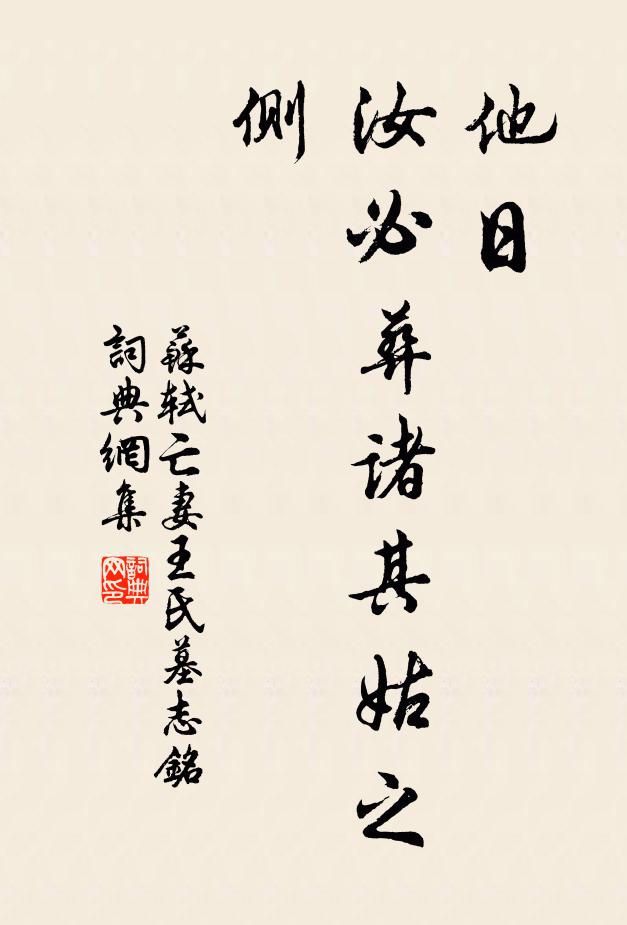 他日
汝必葬諸其姑之
側
蘇軾亡妻王氏墓志銘
詞典網集
詞典
网印